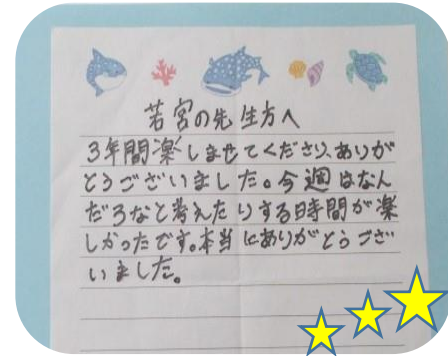 若宮の先生方へ
3年間楽しませてくださり、ありが
とうございました。今週はなん
だろなと考えたりする時間が楽
しかったです。本当にありがとうござ
いました。